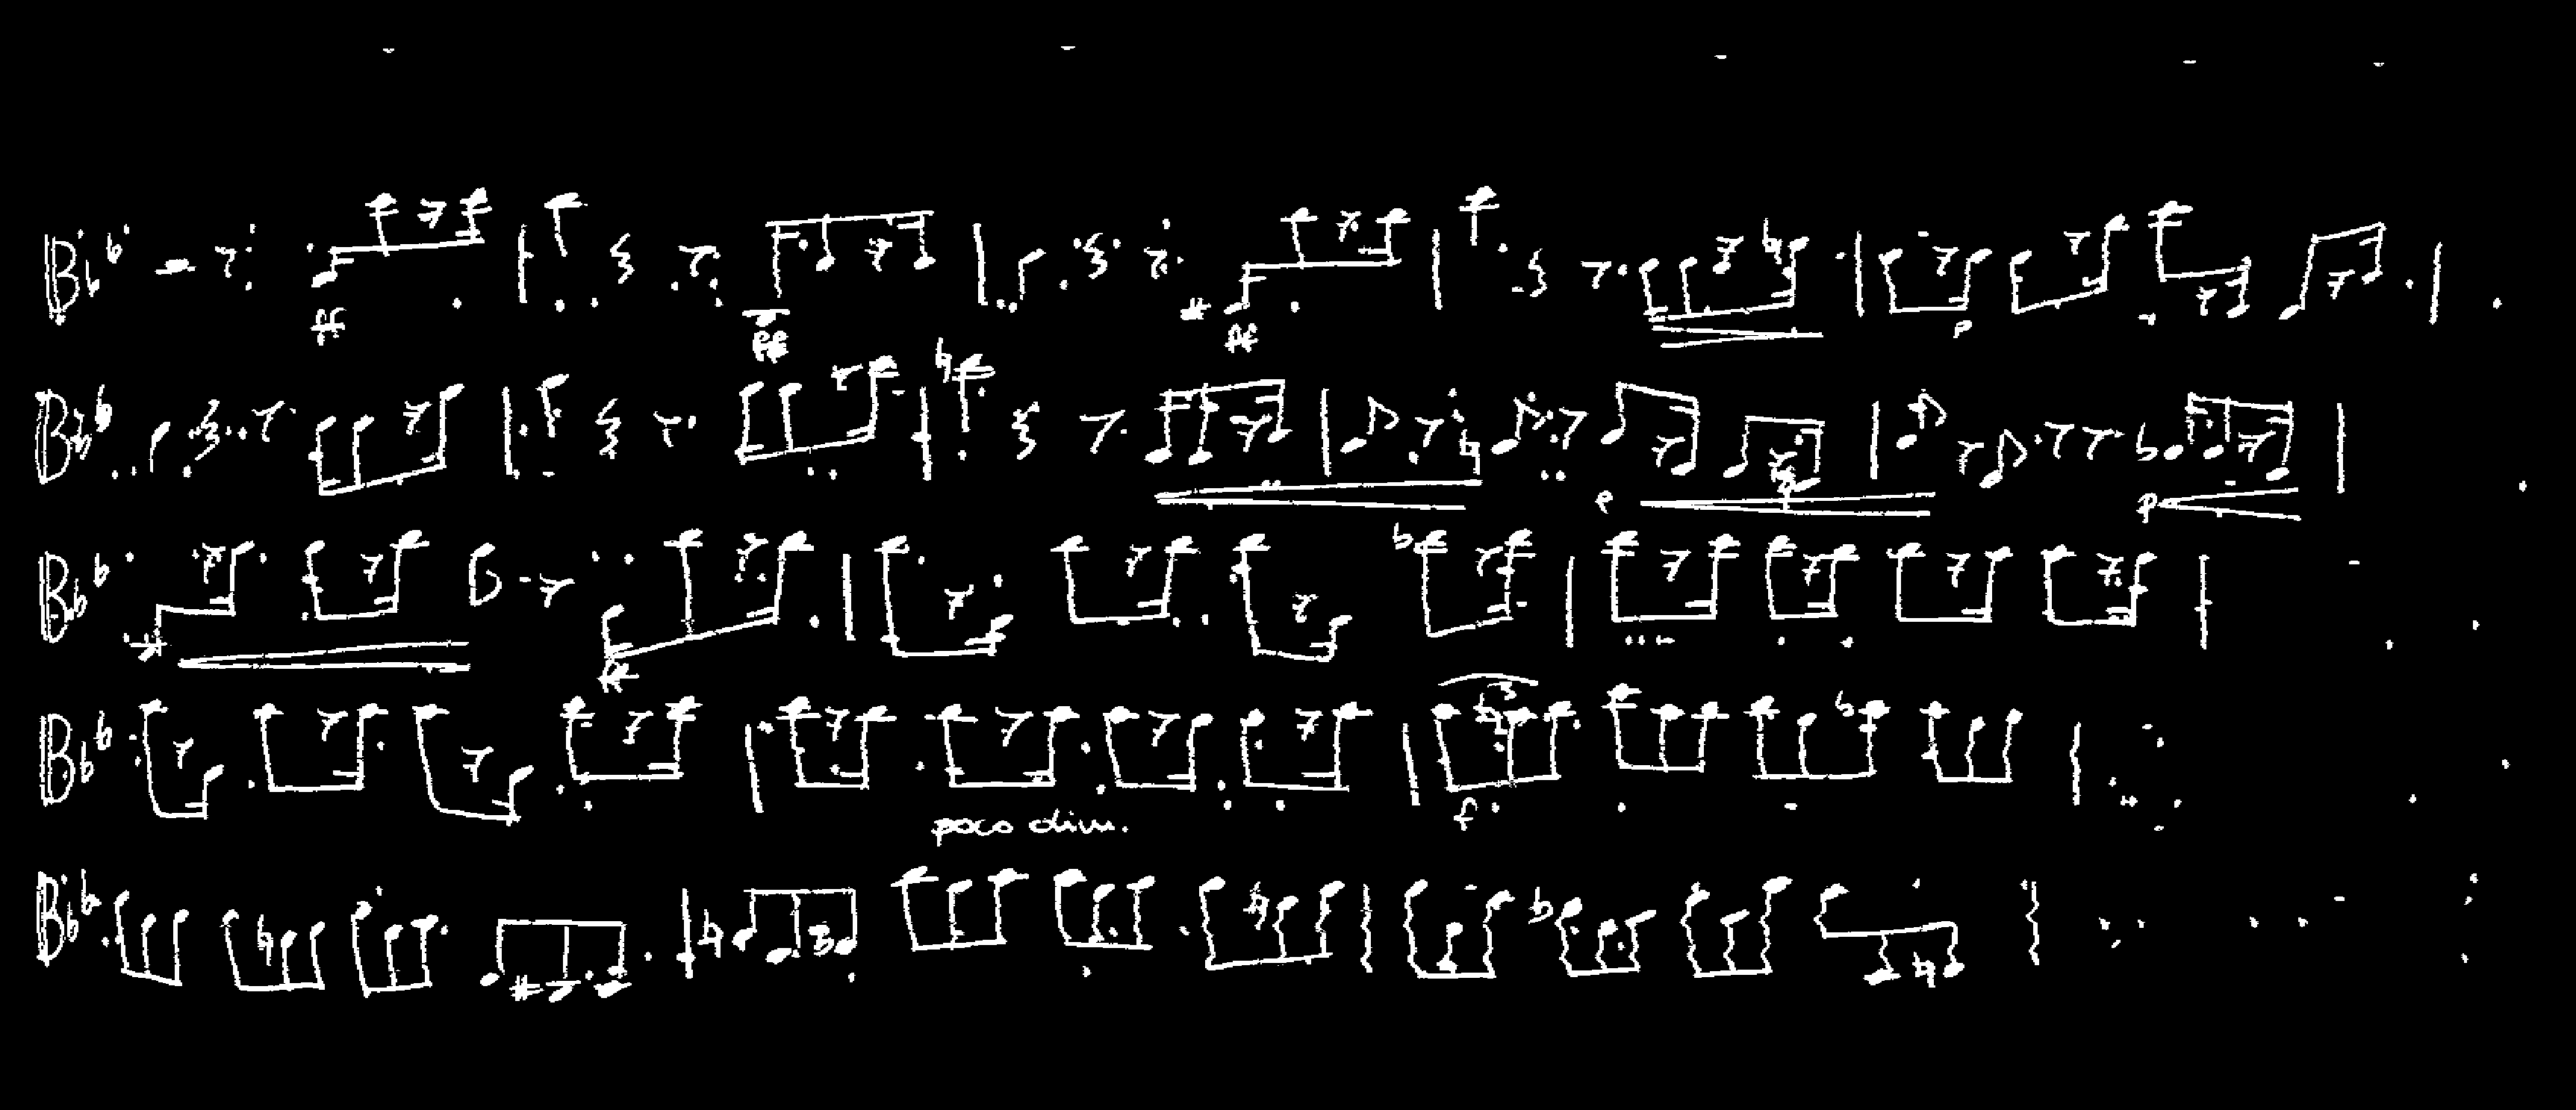 ff ff ff p
p p
ff
3
poco dim. f
3